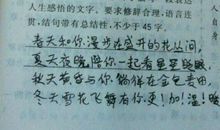 人生感悟的文字。要求修辞合理，语言连
贯，结句带有总结性，不少于45字。
春天和你漫步在盛开的花丛间，
夏天夜晚陪你一起看星星眨眼，
秋天黄昏与你徜徉在金色麦田，
冬天雪花飞舞有你更加温暖